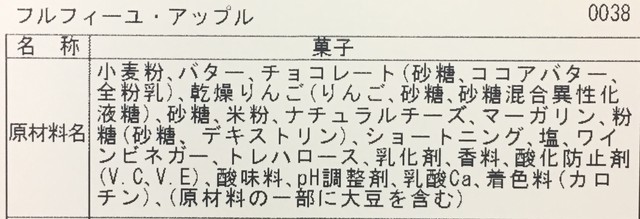 フルフィーユ・アップル 0038
名 称 菓子
原材料名
小麦粉、バター、チョコレート(砂糖、ココアバター、
全粉乳)、乾燥りんご(りんご、砂糖、砂糖混合異性化
液糖)、砂糖、米粉、ナチュラルチーズ、マーガリン、粉
糖(砂糖、デキストリン)、ショートニング、塩、ワイ
ンビネガー、トレハロース、乳化剤、香料、酸化防止剤
(V.C、V.E)、酸味料、pH調整剤、乳酸Ca、着色料(カロ
チン)、(原材料の一部に大豆を含む)